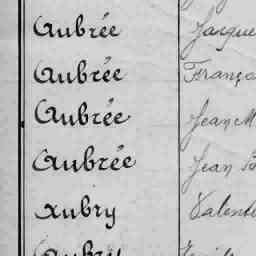 Aubrée Jacque
Aubrée França
Aubrée Jean M
Aubrée Jean B
Aubry Valent
Aubry